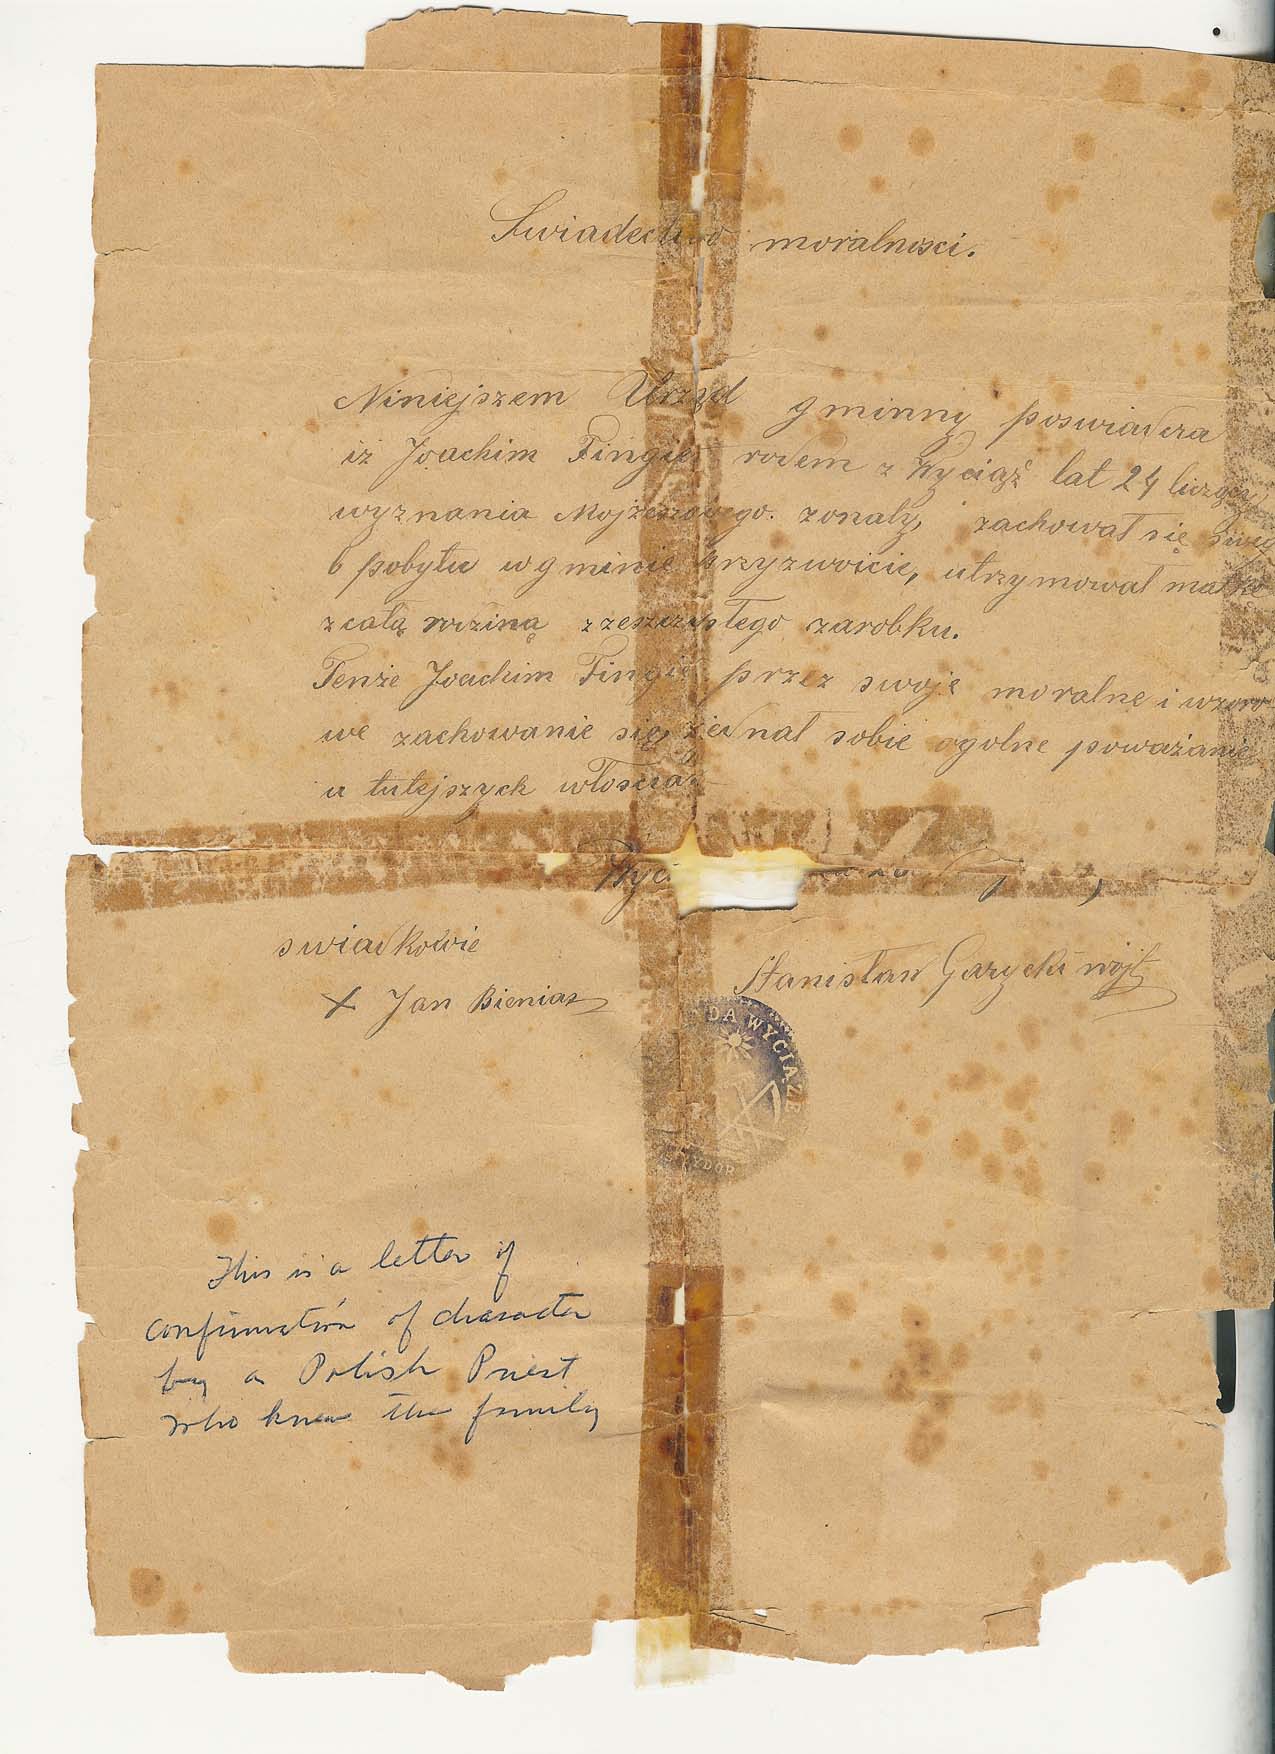 Swiadectwo moralnosci.
Niniejszem Urząd gminny poswiadcza
iz Joachim Finger rodem z Wyciąż lat 24 liczący
wyznania Mojżeszowego. zonaty, zachował się sweg
o pobytu w gminie przyzwoicie, utrzymował matkę
z całą rodziną z rzeczywistego zarobku.
Tenże Joachim Finger przez swoje moralne i wzoro
we zachowanie się zjednał sobie ogolne poważanie
u tutejszych włoscian
Wyci
swiadkowie
Stanisław Garycki wójt
X Jan Bieniasz
DA WYCIĄZE
YDOR
This is a letter of
confirmation of character
by a Polish Priest
who knew the family